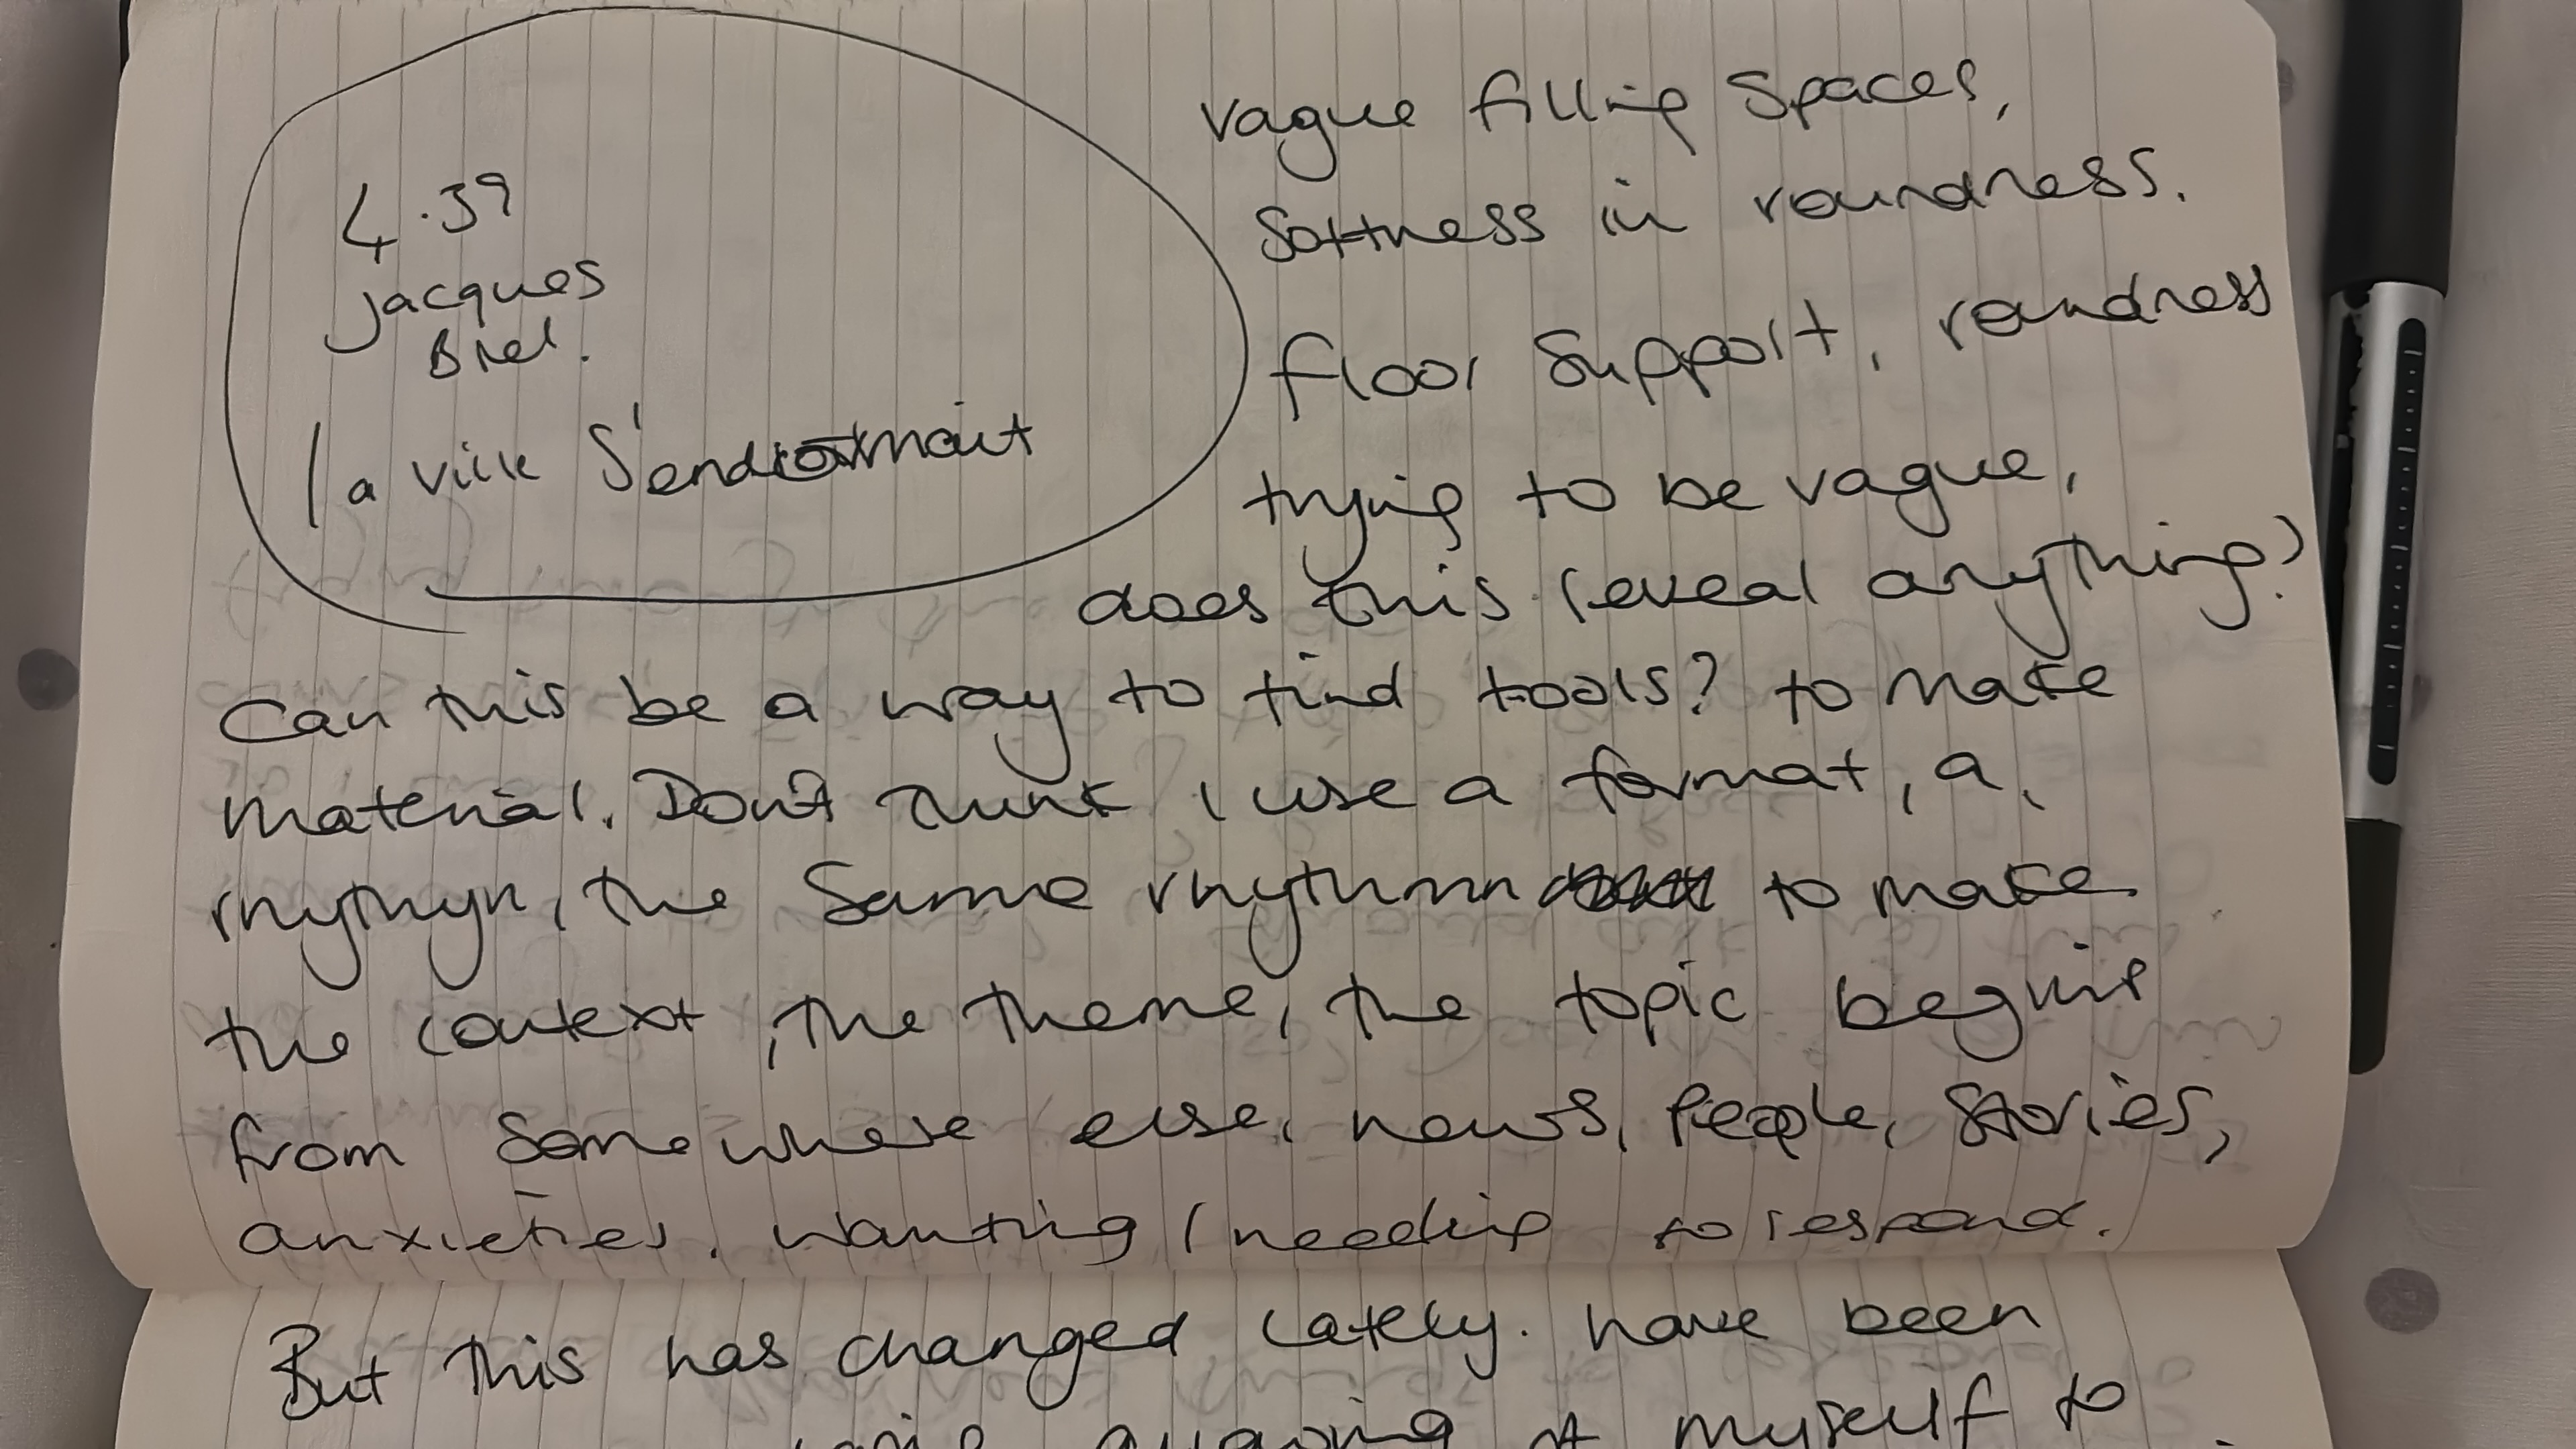 4.39
Jacques
Brel.
la ville S'endormait
vague filling spaces,
Softness in roundness.
floor support, roundness
trying to be vague,
does this reveal anything?
Can this be a way to find tools? to make
material. Don't think I use a format, a,
rhythyn, the same rhythmn to make
the context, the theme, the topic begins
from somewhere else, news, people, stories,
anxieties. wanting / needing to respond.
But this has changed lately. have been
myself to